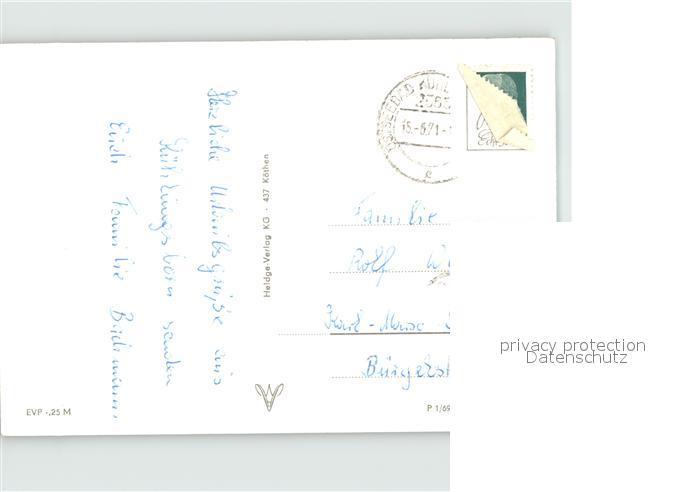 Herzliche Urlaubsgrüße aus
Kühlungsborn senden
Euch Familie Bachmann
Heldge-Verlag KG · 437 Köthen
OSTSEEBAD KÜHL
2565
15.-6.71-
e
Familie
Rolf W
Karl-Marx-
Bürgerst
EVP -,25 M
P 1/69
privacy protection
Datenschutz